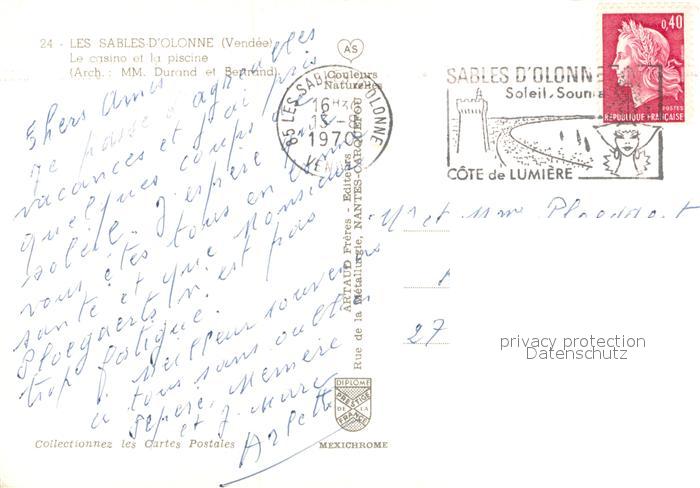 24 - LES SABLES-D'OLONNE (Vendée)
Le casino et la piscine
(Arch. : MM. Durand et Bertrand)
AS
Couleurs
Naturelles
Chers Amis
Je passe d'agréables
vacances et j'ai pris
quelques coups de
soleil. J'espère que
vous êtes tous en bonne
santé et que Monsieur
Ploegaerts n'est pas
trop fatigué.
Meilleurs souvenirs
à tous sans oublier
Pépère, Mémère
et J. Marc
Arlette
85 LES SABLES D'OLONNE
16 H
13-8
1970
VENDÉE
SABLES D'OLONNE
Soleil, Sourire
CÔTE de LUMIÈRE
0,40
POSTES
REPUBLIQUE FRANÇAISE
ARTAUD Frères - Editeurs
Rue de la Métallurgie, NANTES-CARQUEFOU
Mr et Mme
27
privacy protection
Datenschutz
DIPLOME
PRESTIGE
DE LA
FRANCE
Collectionnez les Cartes Postales
MEXICHROME